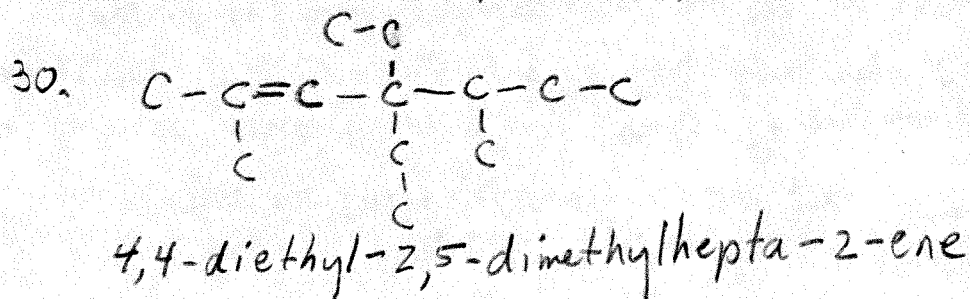 C-C
30. C-C=C-C-C-C-C
C C C
C
4,4-diethyl-2,5-dimethylhepta-2-ene